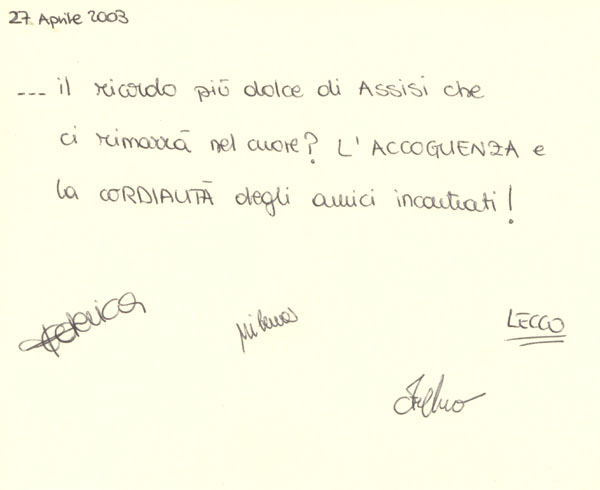 27 Aprile 2003
... il ricordo più dolce di Assisi che
ci rimarrà nel cuore? L'ACCOGLIENZA e
la CORDIALITÀ degli amici incontrati!
Federica
Milena
LECCO